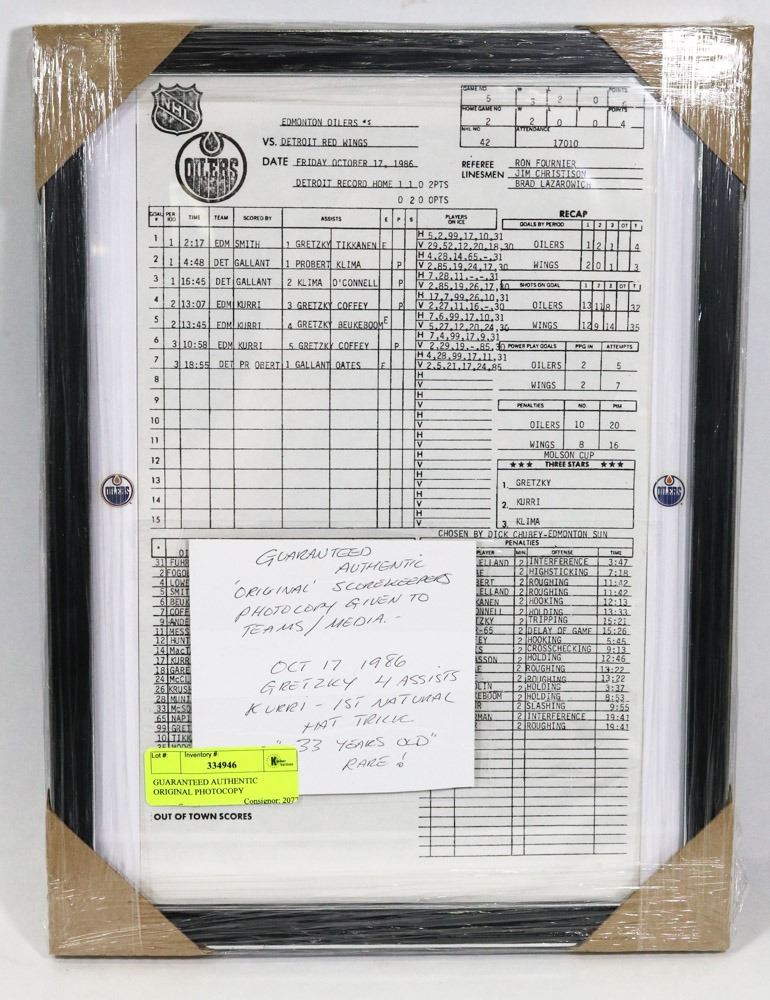 NHL
OILERS
EDMONTON OILERS #5
VS. DETROIT RED WINGS
DATE FRIDAY OCTOBER 17, 1986
DETROIT RECORD HOME 1 1 0 2PTS
0 2 0 0PTS
GAME NO W L T POINTS
5 3 2 0
HOME GAME NO W L T POINTS
2 2 0 0 4
NHL NO ATTENDANCE
42 17010
REFEREE RON FOURNIER
LINESMEN JIM CHRISTISON
BRAD LAZAROWICH
GOAL # PERIOD TIME TEAM SCORED BY ASSISTS E P S PLAYERS ON ICE
1 1 2:17 EDM SMITH 1 GRETZKY TIKKANEN E H 5,2,99,17,10,31
V 29,52,12,20,18,30
2 1 4:48 DET GALLANT 1 PROBERT KLIMA P H 4,28,14,65,-,31
V 2,85,19,24,17,30
3 1 16:45 DET GALLANT 2 KLIMA O'CONNELL P H 7,28,11,-,-,31
V 2,85,19,26,17,30
4 2 13:07 EDM KURRI 3 GRETZKY COFFEY P H 17,7,99,26,10,31
V 2,27,11,16,-,30
5 2 13:45 EDM KURRI 4 GRETZKY BEUKEBOOM E H 7,6,99,17,10,31
V 5,27,12,20,24,30
6 3 10:58 EDM KURRI 5 GRETZKY COFFEY P H 7,4,99,17,9,31
V 2,29,19,-,85,30
7 3 18:55 DET PROBERT 1 GALLANT OATES E H 4,28,99,17,11,31
V 2,5,21,17,24,85
8 H
V
9 H
V
10 H
V
11 H
V
12 H
V
13 H
V
14 H
V
15 H
V
RECAP
GOALS BY PERIOD 1 2 3 OT T
OILERS 1 2 1 4
WINGS 2 0 1 3
SHOTS ON GOAL 1 2 3 OT T
OILERS 13 11 8 32
WINGS 12 9 14 35
POWER PLAY GOALS PPG IN ATTEMPTS
OILERS 2 5
WINGS 2 7
PENALTIES NO. PIM
OILERS 10 20
WINGS 8 16
MOLSON CUP
★★★ THREE STARS ★★★
1. GRETZKY
2. KURRI
3. KLIMA
CHOSEN BY DICK CHUBEY-EDMONTON SUN
OILERS
OILERS
# OI
31 FUHR
2 FOGO
4 LOWE
5 SMIT
6 BEUK
7 COFF
9 ANDE
11 MESS
12 HUNT
14 MacT
17 KURR
18 GARE
24 McCL
26 KRUSH
28 MUNI
33 McSO
65 NAPI
99 GRET
10 TIKK
PENALTIES
PLAYER MIN OFFENSE TIME
ELLAND 2 INTERFERENCE 3:47
AE 2 HIGHSTICKING 7:18
BERT 2 ROUGHING 11:42
LELLAND 2 ROUGHING 11:42
KANEN 2 HOOKING 12:13
ONNELL 2 HOLDING 13:33
TZKY 2 TRIPPING 15:21
R-65 2 DELAY OF GAME 15:26
EY 2 HOOKING 5:45
S 2 CROSSCHECKING 9:13
ASSON 2 HOLDING 12:46
E 2 ROUGHING 13:22
2 ROUGHING 13:22
LIN 2 HOLDING 3:37
KEBOOM 2 HOLDING 8:53
R 2 SLASHING 9:55
RMAN 2 INTERFERENCE 19:41
2 ROUGHING 19:41
GUARANTEED
AUTHENTIC
'ORIGINAL' SCOREKEEPERS
PHOTOCOPY GIVEN TO
TEAMS/MEDIA.-
OCT 17 1986
GRETZKY 4 ASSISTS
KURRI - 1ST NATURAL
HAT TRICK
- "33 YEARS OLD"
RARE!
Lot #: Inventory #:
334946
GUARANTEED AUTHENTIC
ORIGINAL PHOTOCOPY
Consignor: 207
OUT OF TOWN SCORES